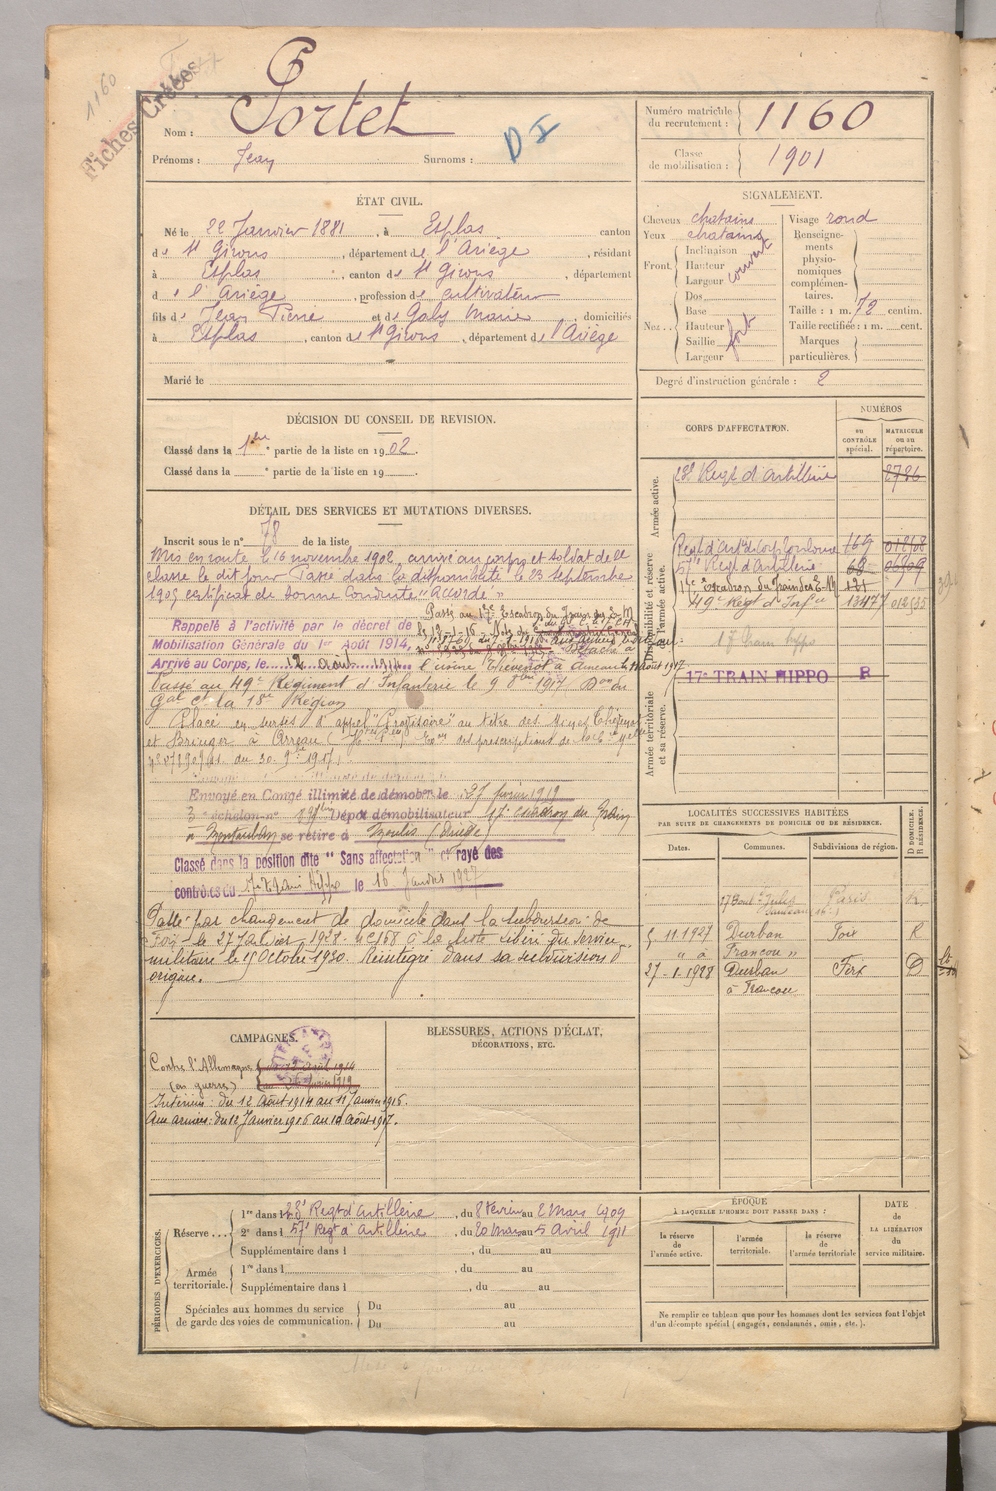 1160
Fiches Créées
Nom : Portet
Prénoms : Jean Surnoms :
D I
Numéro matricule du recrutement : 1160
Classe de mobilisation : 1901
ÉTAT CIVIL.
Né le 22 Janvier 1881, à Esplas canton
de St Girons, département de l'Ariège, résidant
à Esplas, canton de St Girons, département
de l'Ariège, profession de cultivateur
fils de Jean Pierre et de Galy Marie, domiciliés
à Esplas, canton de St Girons, département de l'Ariège
Marié le
SIGNALEMENT.
Cheveux chatains
Yeux chatains
Front. Inclinaison
Hauteur
Largeur
couvert
Nez... Dos
Base
Hauteur
Saillie
Largeur
fort
Visage rond
Renseignements physionomiques complémentaires.
Taille : 1 m. 72 centim.
Taille rectifiée : 1 m. cent.
Marques particulières.
Degré d'instruction générale : 2
DÉCISION DU CONSEIL DE REVISION.
Classé dans la 1ère partie de la liste en 1902.
Classé dans la partie de la liste en 19
DÉTAIL DES SERVICES ET MUTATIONS DIVERSES.
Inscrit sous le n° 78 de la liste
Mis en route le 16 novembre 1902, arrivé au corps et soldat de 2e
classe le dit jour Passé dans la disponibilité le 23 Septembre
1905 certificat de bonne Conduite "Accordé"
Rappelé à l'activité par le décret de
Mobilisation Générale du 1er Août 1914,
Arrivé au Corps, le 12 Août 1914
Passé au 17e Escadron du Train des E-M
Passé au 49e Régiment d'Infanterie le 9 1917 Don du
Gal Ct la 18e Région
Placé en sursis d'appel "Provisoire" au titre des
et Bringer à Arreau
du 30. 9 1917
Envoyé en Congé illimité de démob. le 27 février 1919
échelon n° Dépôt démobilisateur 17e Escadron du Train
à Montauban se retire à
Classé dans la position dite "Sans affectation" et rayé des
contrôles du Hippo le 16 Janvier 1927
Passé par changement de domicile dans la subdivision de
Foix le 27 Janvier 1928. n° 168 à la liste Libéré du service
militaire le 15 Octobre 1930. Réintégré dans sa subdivision d'
origine.
CORPS D'AFFECTATION.
NUMÉROS
au CONTRÔLE spécial.
MATRICULE ou au répertoire.
Armée active.
23e Regt d'Artillerie 2726
Disponibilité et réserve de l'armée active.
Regt d'Arte de corps Toulouse 169 01268
57e Regt d'Artillerie
17e Escadron du Train des E-M 121
49e Regt d'Infie 13477 012535
Armée territoriale et sa réserve.
17 train hippo
17e TRAIN HIPPO R
LOCALITÉS SUCCESSIVES HABITÉES
PAR SUITE DE CHANGEMENTS DE DOMICILE OU DE RÉSIDENCE.
Dates. Communes. Subdivisions de région. D DOMICILE. R RÉSIDENCE.
Paris R
5 11.1927 Durban Foix R
" à Francou "
27-1.1928 Durban Foix D
à Francou
CAMPAGNES.
Contre l'Allemagne du 12 Août 1914
(en guerre) au 26 février 1919
Intérieur : du 12 Août 1914 au 11 Janvier 1916.
Aux armées : du 12 Janvier 1916 au 10 Août 1917.
BLESSURES, ACTIONS D'ÉCLAT,
DÉCORATIONS, ETC.
PÉRIODES D'EXERCICES.
Réserve...
1re dans l 23e Regt d'Artillerie, du 8 Février au 2 Mars 1909
2e dans l 57e Regt d'Artillerie, du 20 Mars au 5 Avril 1911
Supplémentaire dans l , du au
Armée territoriale.
1re dans l , du au
Supplémentaire dans l , du au
Spéciales aux hommes du service de garde des voies de communication.
Du au
Du au
ÉPOQUE
À LAQUELLE L'HOMME DOIT PASSER DANS :
la réserve de l'armée active.
l'armée territoriale.
la réserve de l'armée territoriale
DATE de LA LIBÉRATION du service militaire.
Ne remplir ce tableau que pour les hommes dont les services font l'objet
d'un décompte spécial (engagés, condamnés, omis, etc.).